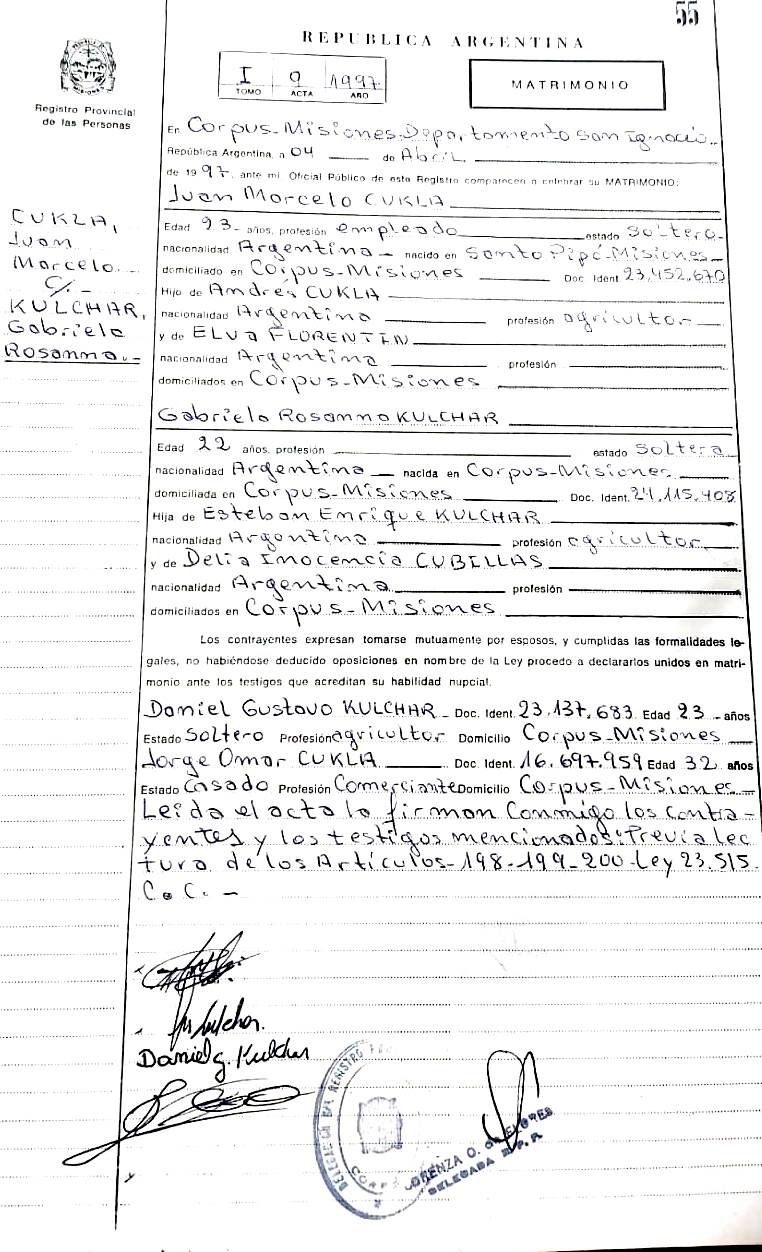 55
REPUBLICA ARGENTINA
I 9 1997
TOMO ACTA AÑO
MATRIMONIO
Registro Provincial
de las Personas
En Corpus-Misiones, Departamento San Ignacio
República Argentina, a 04 de Abril
de 1997, ante mí Oficial Público de este Registro comparecen a celebrar su MATRIMONIO:
Juan Marcelo CUKLA
CUKLA,
Juan
Marcelo
C/.-
KULCHAR,
Gabriela
Rosanna.-
Edad 23 años, profesión empleado estado soltero-
nacionalidad Argentina nacido en Santo Pipó-Misiones
domiciliado en Corpus-Misiones Doc. Ident. 23,452,670
Hijo de Andrés CUKLA
nacionalidad Argentina profesión agricultor
y de ELVA FLORENTIN
nacionalidad Argentina profesión
domiciliados en Corpus-Misiones
Gabriela Rosanna KULCHAR
Edad 22 años, profesión estado soltera
nacionalidad Argentina nacida en Corpus-Misiones
domiciliada en Corpus-Misiones Doc. Ident. 24,115,408
Hija de Esteban Enrique KULCHAR
nacionalidad Argentina profesión agricultor
y de Delia Inocencia CUBILLAS
nacionalidad Argentina profesión
domiciliados en Corpus-Misiones
Los contrayentes expresan tomarse mutuamente por esposos, y cumplidas las formalidades le-
gales, no habiéndose deducido oposiciones en nombre de la Ley procedo a declararlos unidos en matri-
monio ante los testigos que acreditan su habilidad nupcial.
Daniel Gustavo KULCHAR - Doc. Ident. 23,137,683 Edad 23 - años
Estado Soltero Profesión agricultor Domicilio Corpus-Misiones
Jorge Omar CUKLA Doc. Ident. 16.697.959 Edad 32 años
Estado Casado Profesión Comerciante Domicilio Corpus-Misiones
Leída el acta la firman Conmigo los contra-
yentes y los testigos mencionados: Previa lec
tura de los Artículos-198-199-200-Ley 23.515.
C.C. -
Kulchar.
Daniel G. Kulchar
DELEGACION DEL REGISTRO
LORENZA O.
DELEGADA R.P.P.